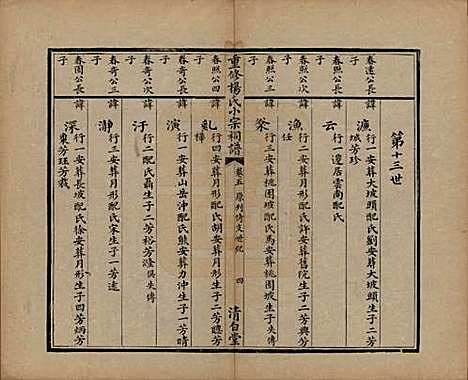 第十三世
春遠公長子
諱濂行一安葬大坡頭配氏劉安葬大坡頭生子二芳
城芳珍
春熙公長子
諱云行一遷居雲南配氏
春熙公次子
諱漁行二安葬月形配氏許安葬舊院生子二芳興芳
任
春熙公三子
行三安葬桃園坡配氏馬安葬桃園坡生子
春熙公四子
行四安葬月形配氏胡安葬月形生子二芳
重修楊氏小宗祠譜
卷五
原利傳文世紀
四
清白堂
春奇公長子
諱演行一安葬山岳沖配氏熊安葬力沖生子一芳晴
春奇公次子
諱汙行二配氏聶生子二芳裕芳澄俱失傳
春奇公三子
諱瀞行三安葬月形配氏宋生子一芳遠
春園公長子
諱深行一安葬長坡配氏徐安葬月形生子四芳炳芳
東芳珏芳載